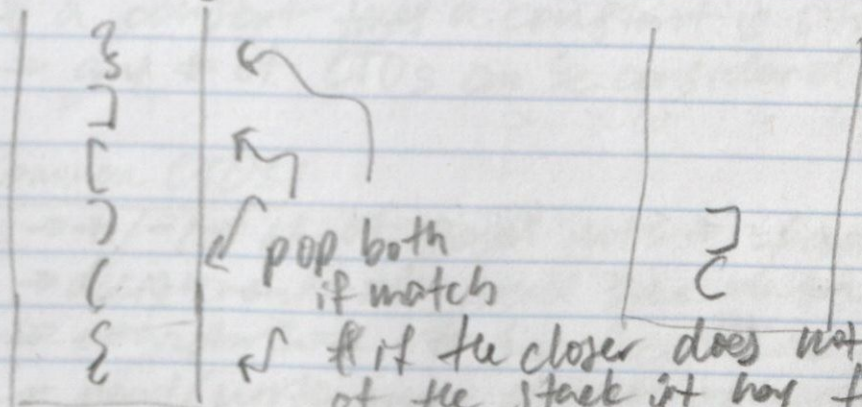 }
]
[
)
(
{
pop both
if match
]
(
# if the closer does not
of the stack it has